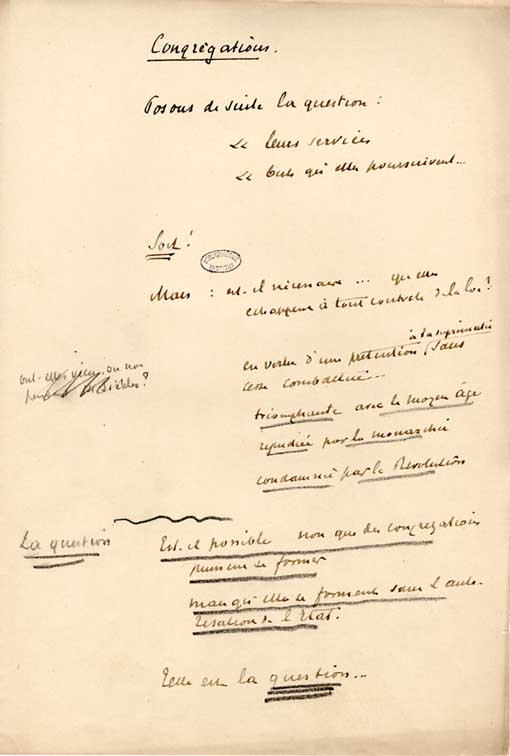 Congrégations.
Posons de suite la question :
Le leurs services
Le buts qu'elles poursuivent...
Soit !
Mais : est-il nécessaire ... qu'elles
échappent à tout contrôle de la loi ?
à la suprématie
en vertu d'une prétention sans
cesse combattue...
ont-elles vécu, ou non
siècles ?
triomphante avec le moyen âge
répudiée par la monarchie
condamnée par la Révolution
La question
Est-il possible non que des congrégations
puissent se former
mais qu'elles se forment sans l'auto-
risation de l'Etat.
Telle est la question...